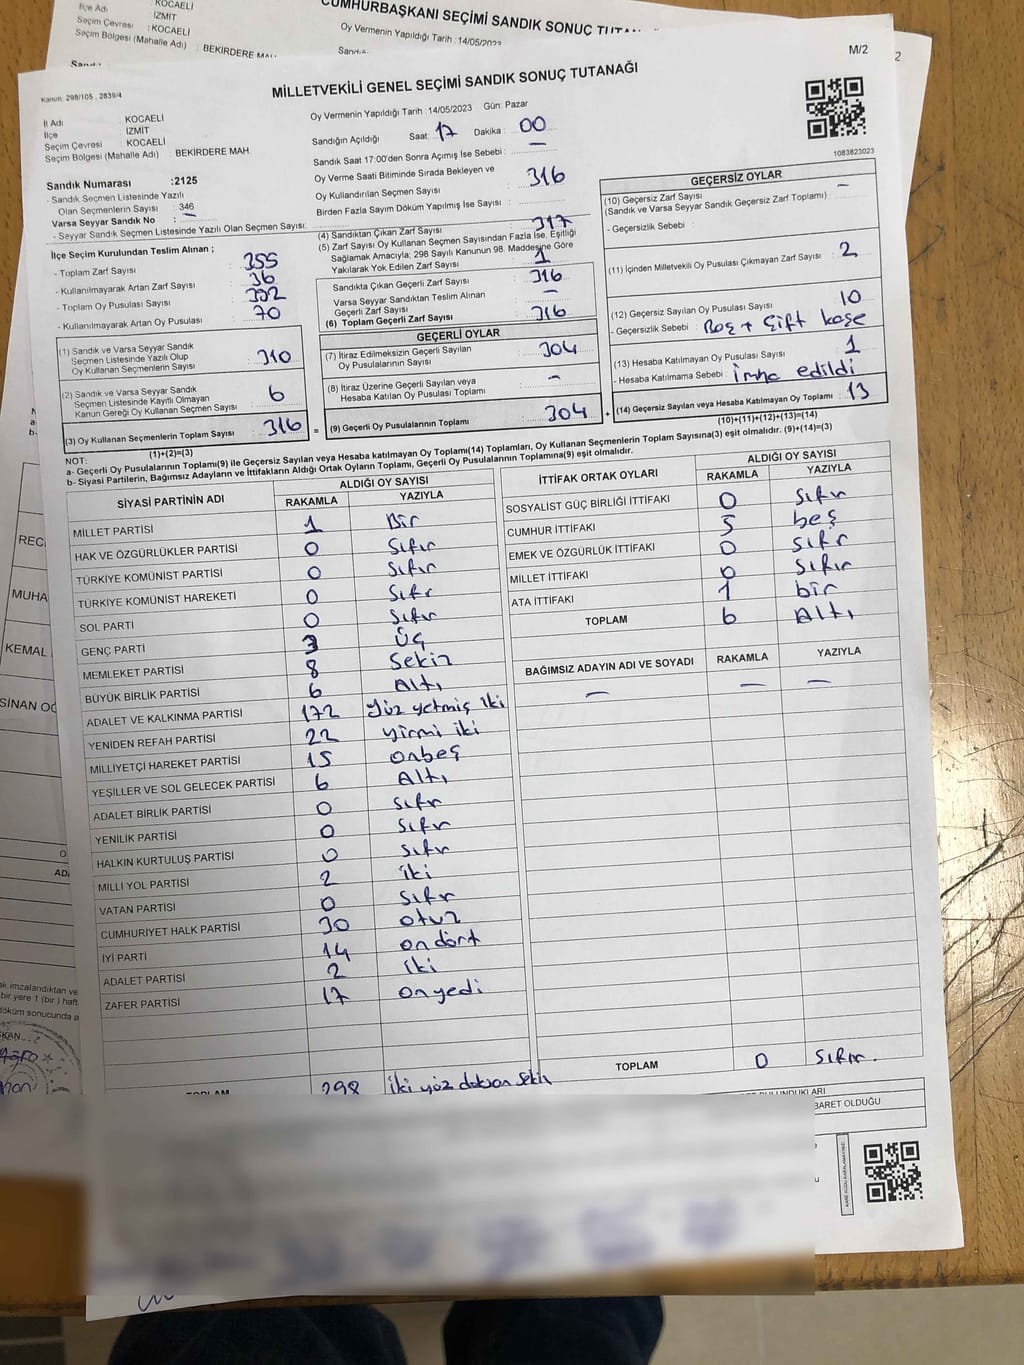 KOCAELİ
İlçe Adı
İZMİT
Seçim Çevresi : KOCAELİ
Seçim Bölgesi (Mahalle Adı) : BEKİRDERE
CUMHURBAŞKANI SEÇİMİ SANDIK SONUÇ
Oy Vermenin Yapıldığı Tarih :14/05/2023
M/2
Kanun: 298/105 , 2839/4
MİLLETVEKİLİ GENEL SEÇİMİ SANDIK SONUÇ TUTANAĞI
İl Adı : KOCAELİ
İlçe : İZMİT
Seçim Çevresi : KOCAELİ
Seçim Bölgesi (Mahalle Adı) : BEKİRDERE MAH.
Oy Vermenin Yapıldığı Tarih :14/05/2023 Gün: Pazar
Sandığın Açıldığı Saat: 17 Dakika : 00
Sandık Saat 17:00'den Sonra Açımış İse Sebebi : —
Oy Verme Saati Bitiminde Sırada Bekleyen ve
Oy Kullandırılan Seçmen Sayısı : 316
Birden Fazla Sayım Döküm Yapılmış İse Sayısı :
1083823023
Sandık Numarası :2125
- Sandık Seçmen Listesinde Yazılı
Olan Seçmenlerin Sayısı : 346
Varsa Seyyar Sandık No : —
- Seyyar Sandık Seçmen Listesinde Yazılı Olan Seçmen Sayısı:
İlçe Seçim Kurulundan Teslim Alınan ;
- Toplam Zarf Sayısı : 355
- Kullanılmayarak Artan Zarf Sayısı : 36
- Toplam Oy Pusulası Sayısı : 392
- Kullanılmayarak Artan Oy Pusulası : 70
(1) Sandık ve Varsa Seyyar Sandık
Seçmen Listesinde Yazılı Olup
Oy Kullanan Seçmenlerin Sayısı : 310
(2) Sandık ve Varsa Seyyar Sandık
Seçmen Listesinde Kayıtlı Olmayan
Kanun Gereği Oy Kullanan Seçmen Sayısı : 6
(3) Oy Kullanan Seçmenlerin Toplam Sayısı : 316
(1)+(2)=(3)
(4) Sandıktan Çıkan Zarf Sayısı : 317
(5) Zarf Sayısı Oy Kullanan Seçmen Sayısından Fazla İse, Eşitliği
Sağlamak Amacıyla, 298 Sayılı Kanunun 98. Maddesine Göre
Yakılarak Yok Edilen Zarf Sayısı : 1
Sandıkta Çıkan Geçerli Zarf Sayısı : 316
Varsa Seyyar Sandıktan Teslim Alınan
Geçerli Zarf Sayısı : —
(6) Toplam Geçerli Zarf Sayısı : 316
GEÇERLİ OYLAR
(7) İtiraz Edilmeksizin Geçerli Sayılan
Oy Pusulalarının Sayısı : 304
(8) İtiraz Üzerine Geçerli Sayılan veya
Hesaba Katılan Oy Pusulası Toplamı : —
= (9) Geçerli Oy Pusulalarının Toplamı : 304 +
GEÇERSİZ OYLAR
(10) Geçersiz Zarf Sayısı : —
(Sandık ve Varsa Sandık Geçersiz Zarf Toplamı)
- Geçersizlik Sebebi :
(11) İçinden Milletvekili Oy Pusulası Çıkmayan Zarf Sayısı : 2
(12) Geçersiz Sayılan Oy Pusulası Sayısı : 10
- Geçersizlik Sebebi : Boş + Çift kaşe
(13) Hesaba Katılmayan Oy Pusulası Sayısı : 1
- Hesaba Katılmama Sebebi : imha edildi
(14) Geçersiz Sayılan veya Hesaba Katılmayan Oy Toplamı : 13
(10)+(11)+(12)+(13)=(14)
NOT:
a- Geçerli Oy Pusulalarının Toplamı(9) ile Geçersiz Sayılan veya Hesaba katılmayan Oy Toplam(14) Toplamları, Oy Kullanan Seçmenlerin Toplam Sayısına(3) eşit olmalıdır. (9)+(14)=(3)
b- Siyasi Partilerin, Bağımsız Adayların ve İttifakların Aldığı Ortak Oyların Toplamı, Geçerli Oy Pusulalarının Toplamına(9) eşit olmalıdır.
SİYASİ PARTİNİN ADI ALDIĞI OY SAYISI
RAKAMLA YAZIYLA
MİLLET PARTİSİ 1 Bir
HAK VE ÖZGÜRLÜKLER PARTİSİ 0 Sıfır
TÜRKİYE KOMÜNİST PARTİSİ 0 Sıfır
TÜRKİYE KOMÜNİST HAREKETİ 0 Sıfır
SOL PARTİ 0 Sıfır
GENÇ PARTİ 3 Üç
MEMLEKET PARTİSİ 8 Sekiz
BÜYÜK BİRLİK PARTİSİ 6 Altı
ADALET VE KALKINMA PARTİSİ 172 yüz yetmiş iki
YENİDEN REFAH PARTİSİ 22 yirmi iki
MİLLİYETÇİ HAREKET PARTİSİ 15 onbeş
YEŞİLLER VE SOL GELECEK PARTİSİ 6 Altı
ADALET BİRLİK PARTİSİ 0 Sıfır
YENİLİK PARTİSİ 0 Sıfır
HALKIN KURTULUŞ PARTİSİ 0 Sıfır
MİLLİ YOL PARTİSİ 2 iki
VATAN PARTİSİ 0 Sıfır
CUMHURİYET HALK PARTİSİ 30 otuz
İYİ PARTİ 14 on dört
ADALET PARTİSİ 2 iki
ZAFER PARTİSİ 17 onyedi
TOPLAM 298 iki yüz doksan sekiz
İTTİFAK ORTAK OYLARI ALDIĞI OY SAYISI
RAKAMLA YAZIYLA
SOSYALİST GÜÇ BİRLİĞİ İTTİFAKI 0 Sıfır
CUMHUR İTTİFAKI 5 beş
EMEK VE ÖZGÜRLÜK İTTİFAKI 0 Sıfır
MİLLET İTTİFAKI 0 Sıfır
ATA İTTİFAKI 1 bir
TOPLAM 6 Altı
BAĞIMSIZ ADAYIN ADI VE SOYADI RAKAMLA YAZIYLA
— — —
TOPLAM 0 Sıfır.
BARET OLDUĞU
REC
MUHA
KEMAL
SİNAN